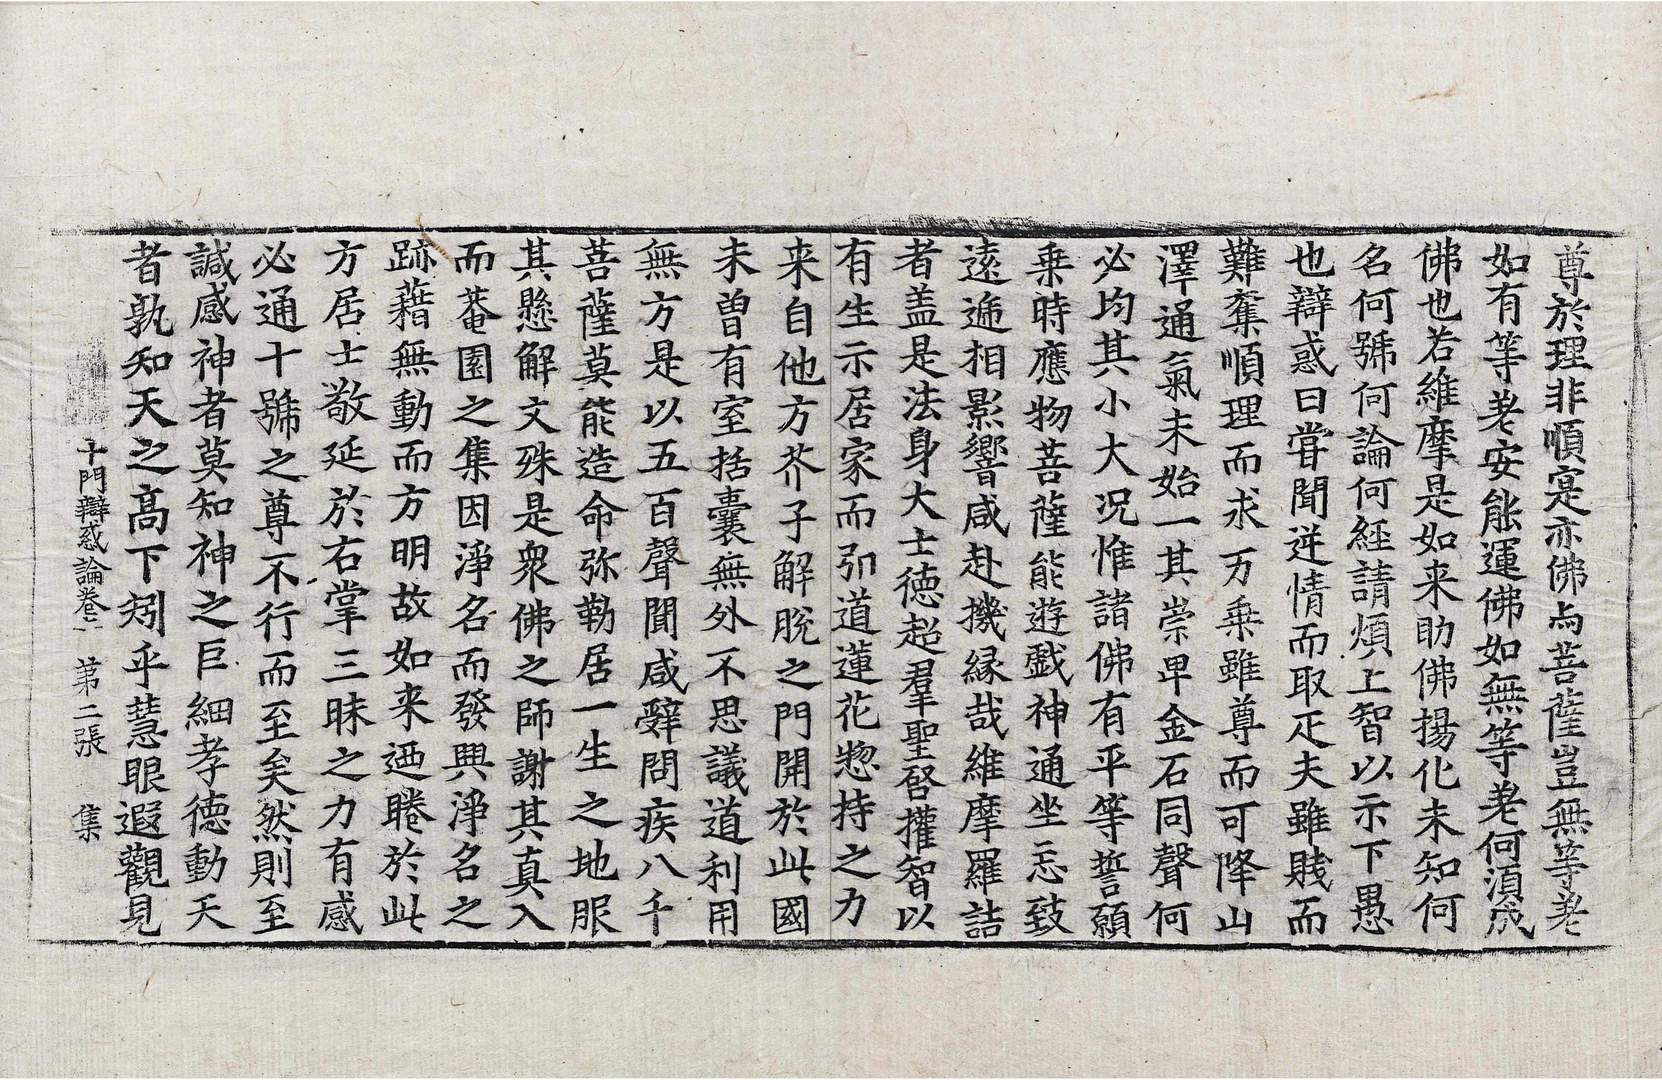 尊於理非順寔亦佛与菩薩豈無等差
如有等差安能運佛如無等差何須成
佛也若維摩是如来助佛揚化未知何
名何號何論何經請煩上智以示下愚
也辯惑曰甞聞逆情而取疋夫雖賤而
難奪順理而求万乗雖尊而可降山
澤通氣未始一其崇卑金石同聲何
必均其小大况惟諸佛有平等誓願
乗時應物菩薩能遊戲神通坐忘致
遠遞相影響咸赴機縁哉維摩羅詰
者盖是法身大士德超羣聖啓權智以
有生示居家而引道蓮花惣持之力
来自他方芥子解脫之門開於此國
未曽有室括囊無外不思議道利用
無方是以五百聲聞咸辭問疾八千
菩薩莫能造命弥勒居一生之地服
其懸解文殊是衆佛之師謝其真入
而菴園之集因淨名而發興淨名之
跡藉無動而方明故如来迺睠於此
方居士敬延於右掌三昧之力有感
必通十號之尊不行而至矣然則至
諴感神者莫知神之巨細孝德動天
者孰知天之高下矧乎慧眼遐觀見
十門辯惑論卷二 第二張 集